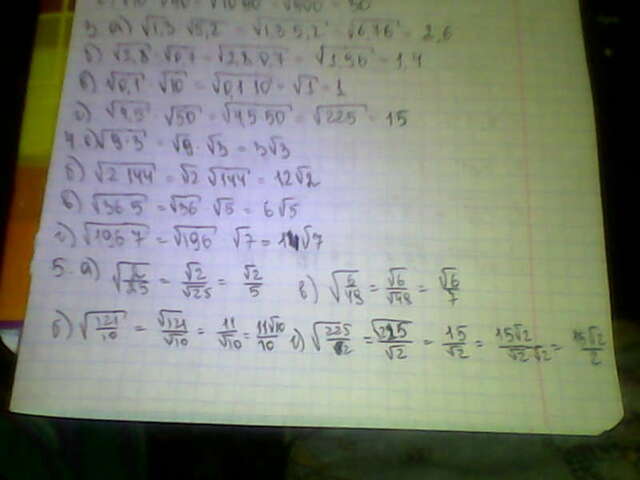 3. а) √1,3 √5,2 = √1,3 5,2 = √6,76 = 2,6
б) √2,8 √0,7 = √2,8 0,7 = √1,96 = 1,4
в) √0,1 √10 = √0,1 10 = √1 = 1
г) √4,5 √50 = √4,5 50 = √225 = 15
4. √9·3 = √9 · √3 = 3√3
б) √2 144 = √2 √144 = 12√2
в) √36 5 = √36 √5 = 6√5
г) √196 7 = √196 √7 = 14√7
5. а) √2/25 = √2/√25 = √2/5 в) √6/49 = √6/√49 = √6/7
б) √121/10 = √121/√10 = 11/√10 = 11√10/10 г) √225/2 = √225/√2 = 15/√2 = 15√2/√2 √2 = 15√2/2